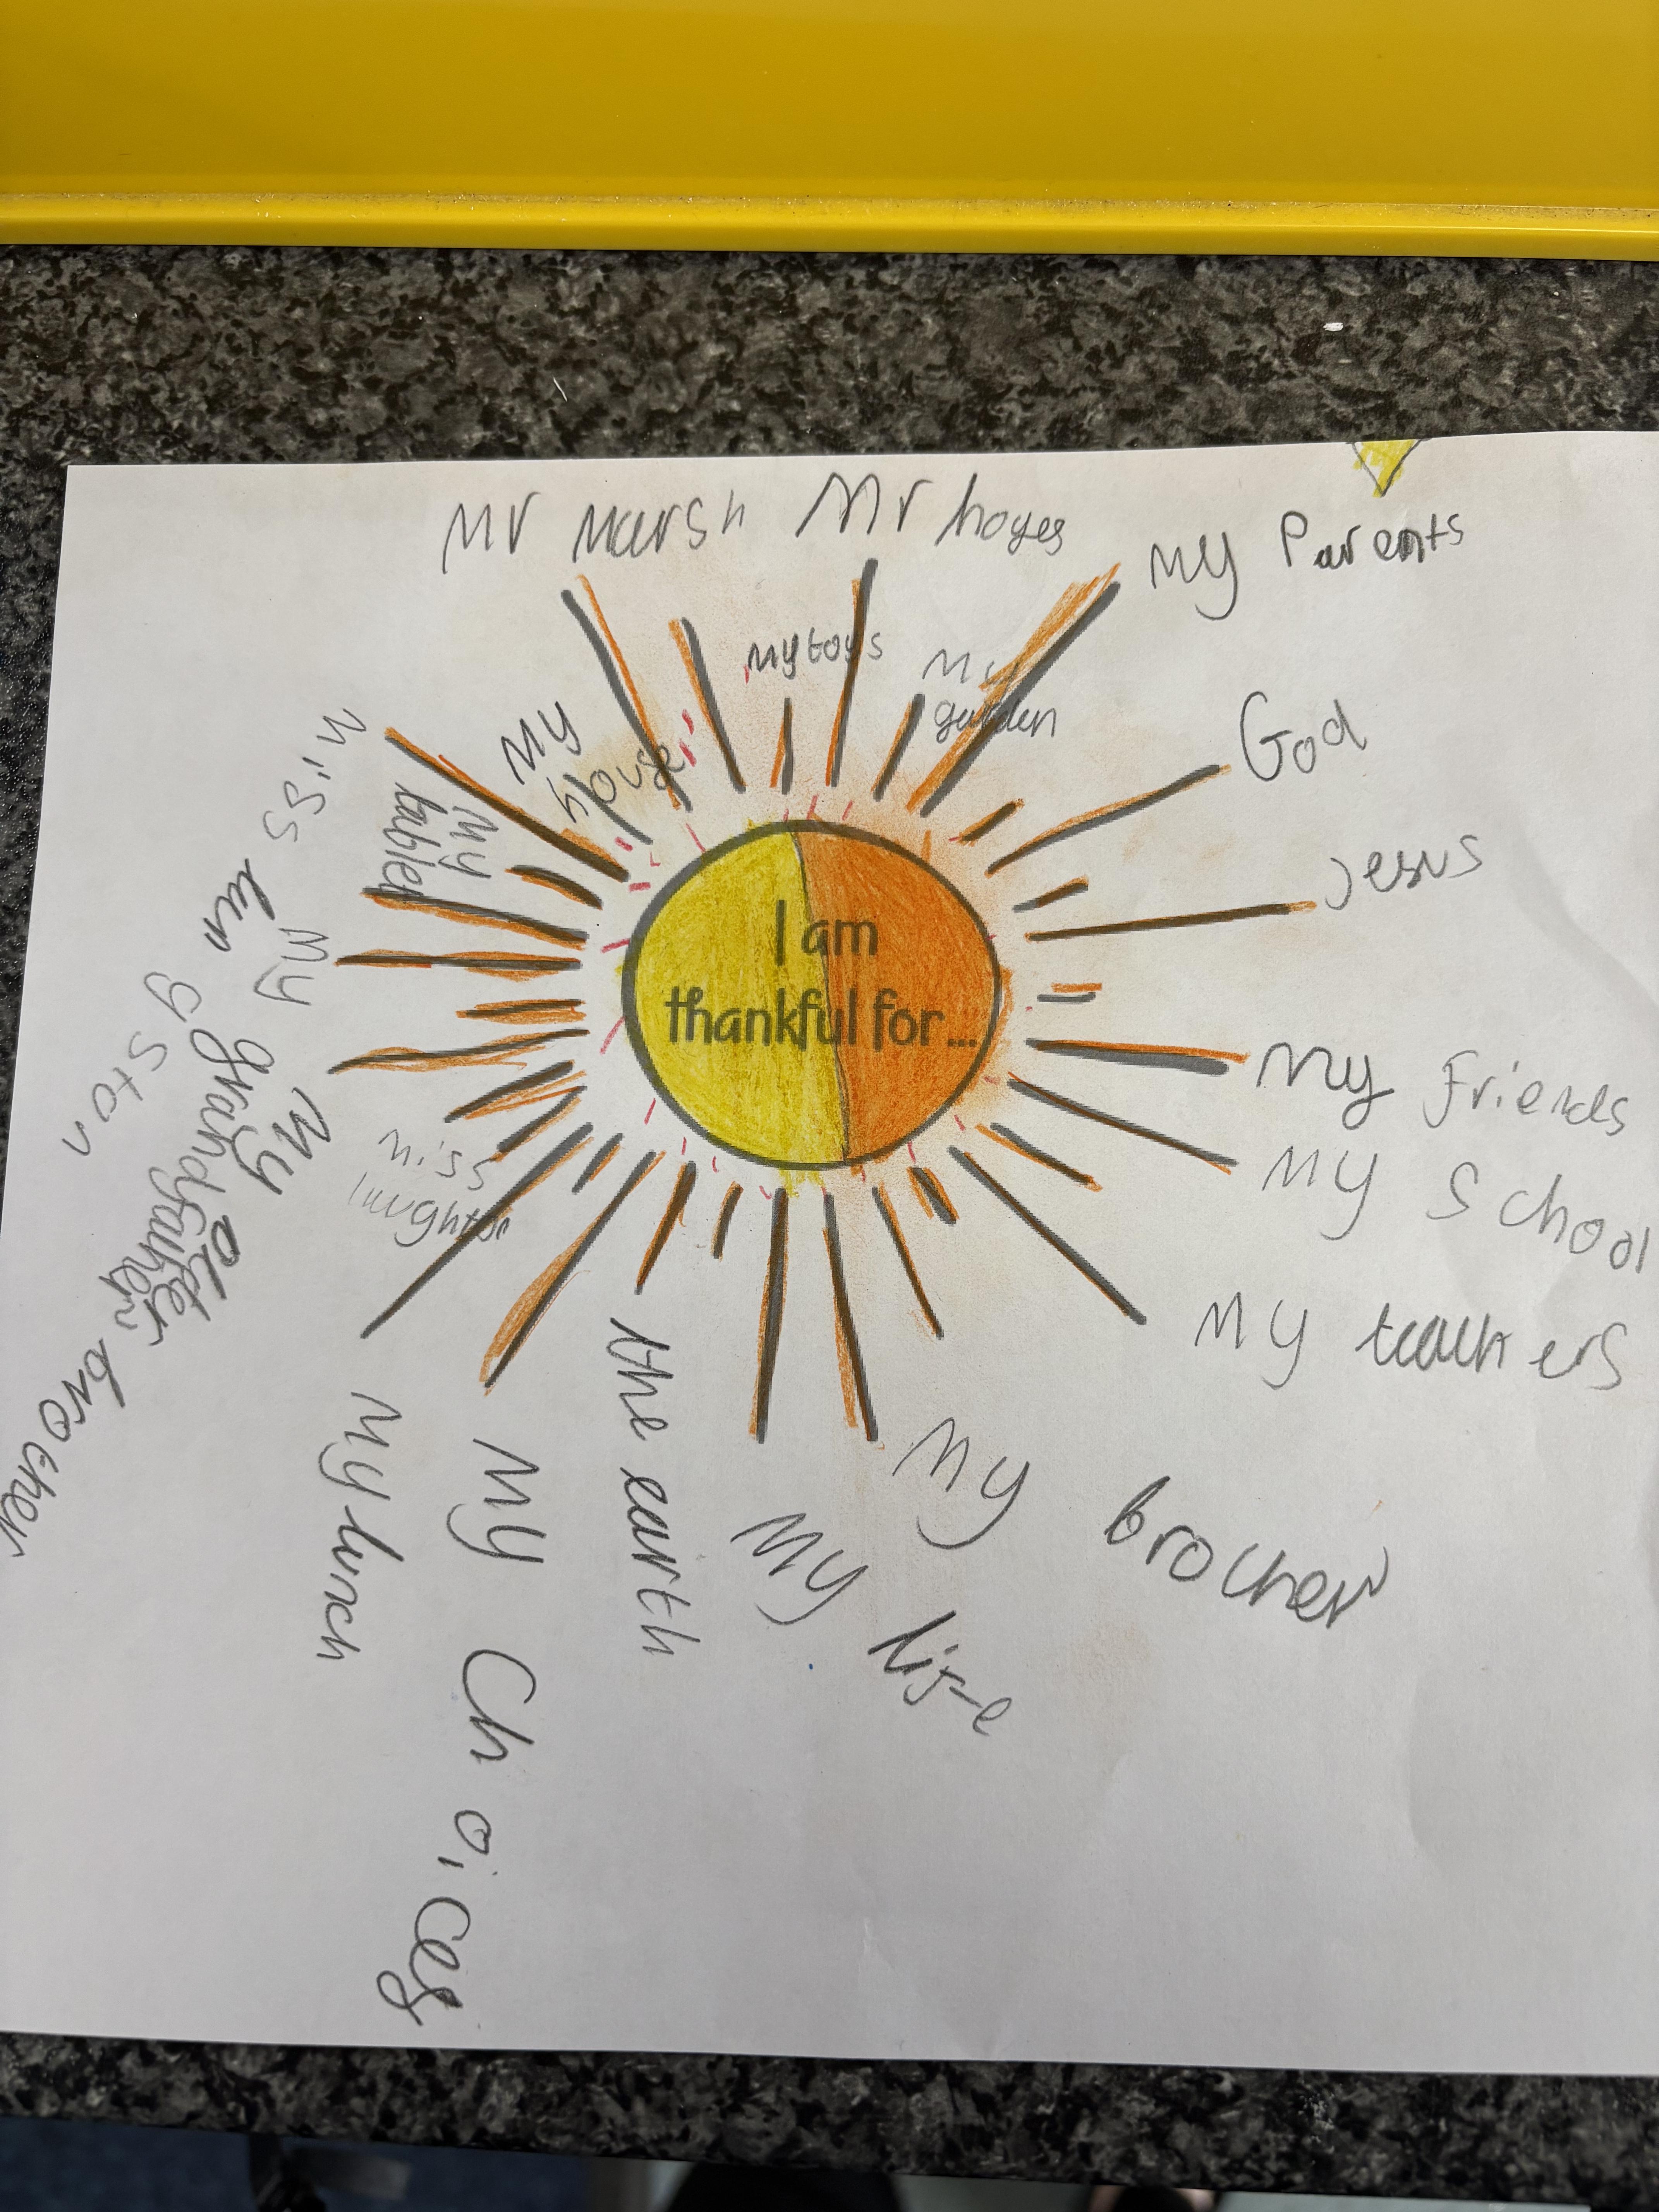 I am
thankful for...
Mr marsh
Mr hayes
my Parents
God
Jesus
my friends
my school
my teachers
my brother
my life
the earth
my Choices
my lunch
my older brother
my grandfather
miss lun g ston
my toys
my
garden
my
house
my
tablet
miss